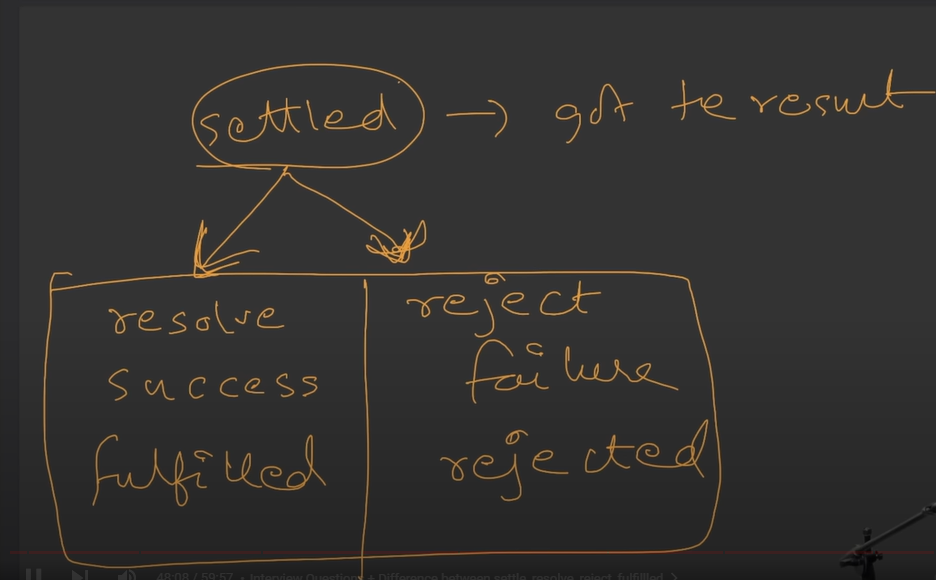 settled → got te result
resolve
success
fulfilled
reject
failure
rejected
48:08 / 59:57 • Interview Question + Difference between settle, resolve, reject, fulfilled